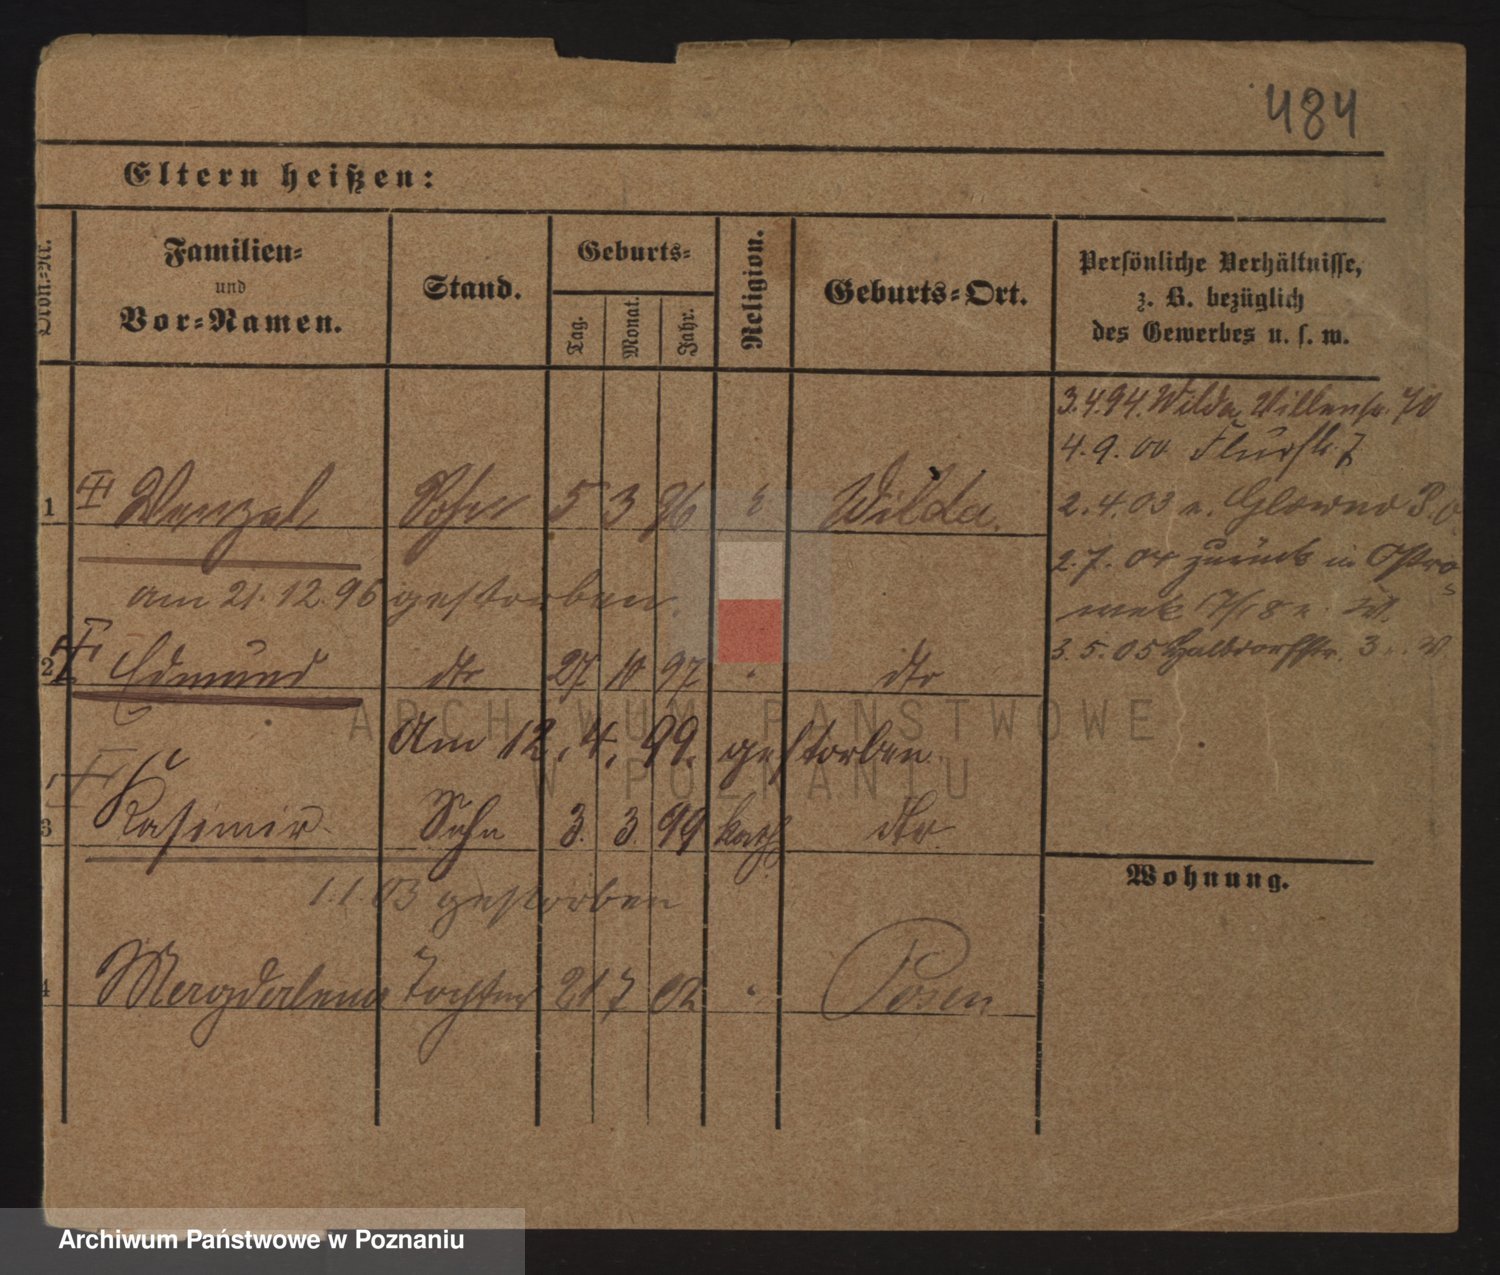 484
Eltern heißen:
Ordn.-Nr.
Familien-
und
Vor-Namen.
Stand.
Geburts-
Tag.
Monat.
Jahr.
Religion.
Geburts-Ort.
Persönliche Verhältnisse,
z. B. bezüglich
des Gewerbes u. s. w.
3.4.94. Wilda, 70
4.9.00 Flurstr. 7
2.4.03 n. Glowno P.O.
2.7.04 zurück in Ostro-
wek 17/18
3.5.05 3
1 Wenzel Sohn 5 3 96 Wilda.
am 21.12.96 gestorben.
2 Edmund dto 27 10 97 " dto
Am 12.4.99. gestorben.
3 Kasimir Sohn 3. 3. 99 kath. dto.
1.1.03 gestorben
4 Magdalena Tochter 21 7 02 " Posen
Wohnung.
ARCHIWUM PAŃSTWOWE
W POZNANIU
Archiwum Państwowe w Poznaniu